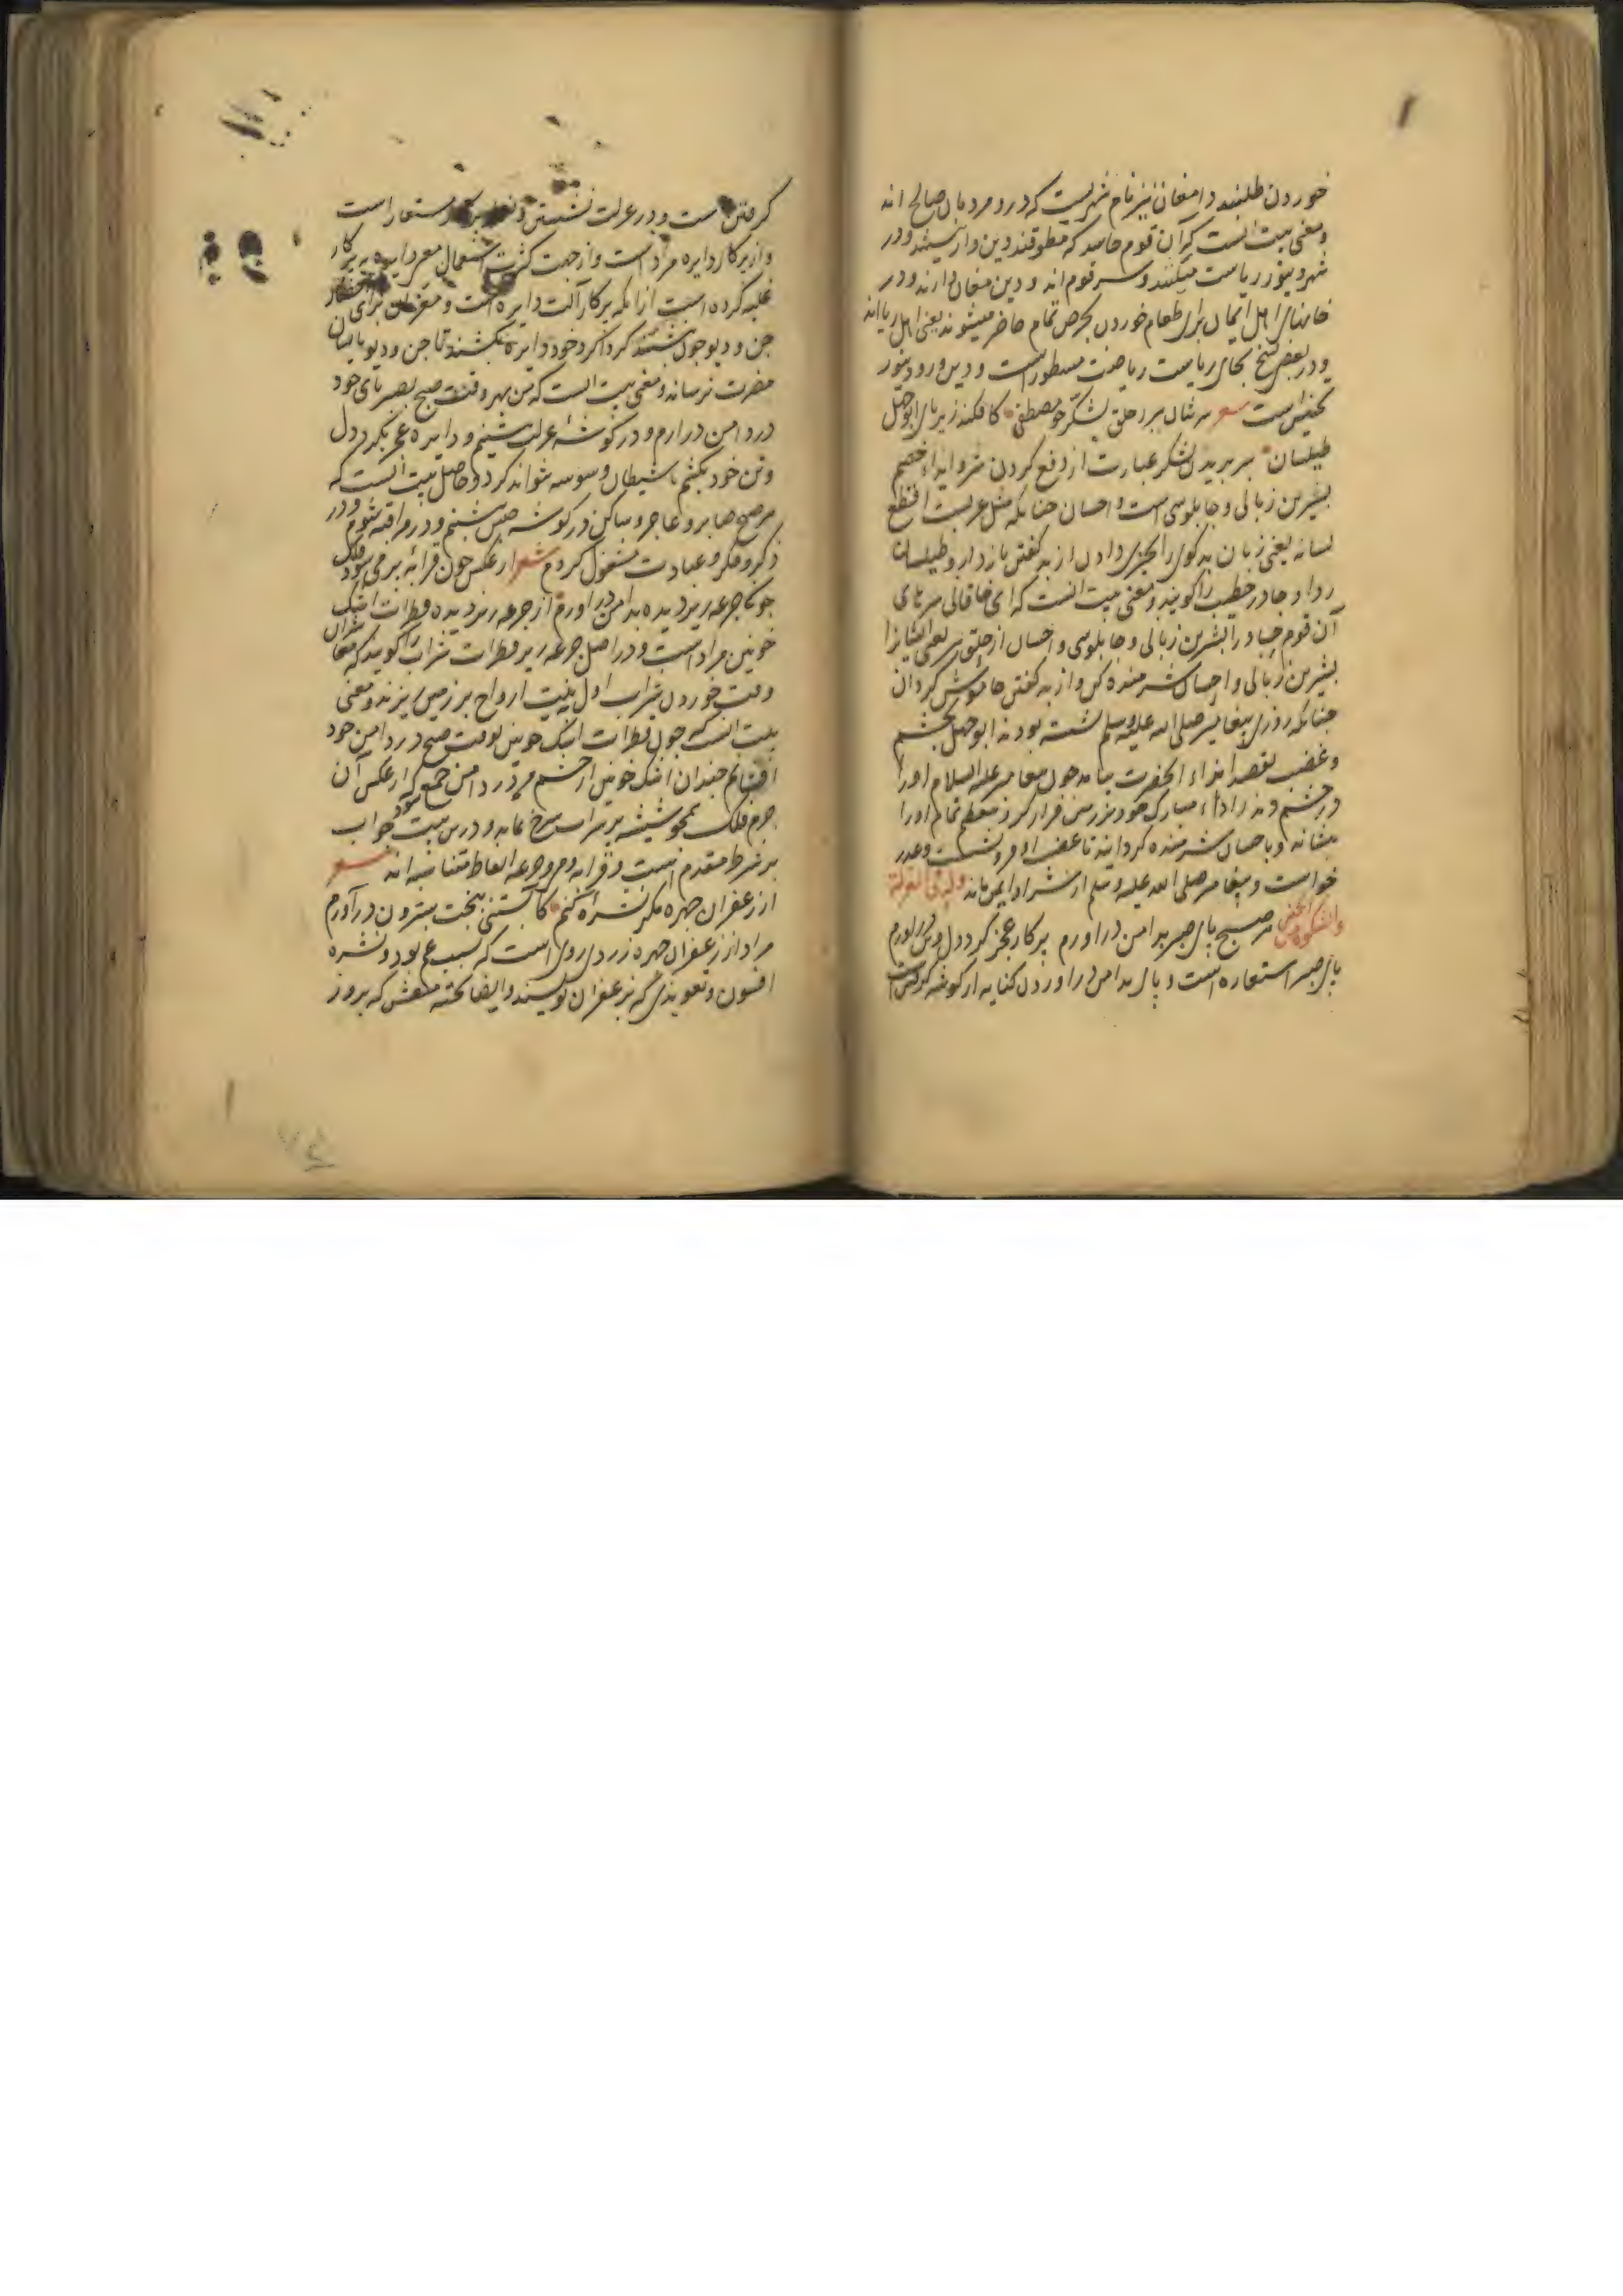 خوردن طلبند دامغان نیز نام شهریست که درو مردمان صالح اند
و معنی بیت انست که آن قوم حاسد که مطوقند دین وار نیستند و در
شهر دیبور ریاست میکنند و سر قوم اند و دین مغان دارند و در
خانهای اهل ایمان برای طعام خوردن بحرص تمام حاضر میشوند یعنی اهل ریا اند
و در بعض نسخ بجای ریاست ریاضت مسطور است و دین و رو دینور
تجنیس است شعر سر شان ببر بحلق بشکر چو مصطفی کافکند زیر پای ابوجهل
طیلسان سر بریدن بشکر عبارت از دفع کردن شر و ایذاء خصم
بشیرین زبانی و چاپلوسی است و احسان چنانکه مثل عربست اقطع
لسانه یعنی زبان بدگوی را بچیزی دادن از بد گفتن بازدار و طیلسان
ردا و چادر خطیب را گویند و معنی بیت انست که ای خاقانی سرهای
آن قوم حساد را بشیرین زبانی و چاپلوسی و احسان از حلق ببر یعنی ایشانرا
بشیرین زبانی و احسان شرمنده کن و از بد گفتن خاموش گردان
چنانکه روزی پیغامبر صلی الله علیه وسلم نشسته بودند ابوجهل بخشم
و غضب بقصد ایذاء انحضرت بیامد چون پیغامبر علیه السلام او را
در خشم دید رداء مبارک خود بر زمین فراز کرد و بتعظیم تمام او را
بنشاند و باحسان شرمنده گردانید تا غضب او فرو نشست و عذر
خواست و پیغامبر صلی الله علیه وسلم از شر او ایمن ماند وله فی العزلة
والشکوة من الحبس هر صبح پای صبر بدامن دراورم پرکار عجز گرد دل و تن دراورم
پای صبر استعاره است و پای بدامن دراوردن کنایه از گوشه
گرفتن است و در عزلت نشستن و مستعار است
و از پرکار دایره مراد است و از جهت کثرت استعمال معنی دایره بر پرکار
غلبه کرده است از آنکه پرکار آلت دایره است و معزمان برای احضار
جن و دیو چون نشینند گرداگرد خود دایره بکشند تا جن و دیو بایشان
مضرت نرساند و معنی بیت انست که من بهر وقت صبح بصبر پای خود
در دامن درارم و در گوشهٔ عزلت نشینم و دایره عجز بگرد دل
و تن خود بکشم تا شیطان وسوسه نتواند کرد و حاصل بیت انست که
هر صبح صابر و عاجز و ساکن در گوشه حبس بنشینم و در مراقبه شوم و در
ذکر و فکر و عبادت مشغول گردم شعر از عکس خون قرابه پر می شود فلک
چون جرعه ریز دیده بدامن دراورم از جرعه ریز دیده قطرات اشک
خونین مراد است و در اصل جرعه ریز قطرات شراب را گویند که
وقت خوردن شراب اول به نیت ارواح بر زمین ریزند و معنی
بیت انست که چون قطرات اشک خونین بوقت صبح در دامن خود
افشانم چندان اشک خونین از چشم من در دامن جمع شود که از عکس آن
جرم فلک همچو شیشه پر شراب سرخ نماید و درین بیت جواب
بر شرط مقدم است و قرابه و می و جرعه الفاظ متناسبه اند شعر
از زعفران چهره مگر نشره کنم کابستنی ببخت سترون درآورم
مراد از زعفران چهره زردی روی است که بسبب غم بود و نشره
افسون و تعویذی که بزعفران نویسند و ایضا تخته منقش که بروز